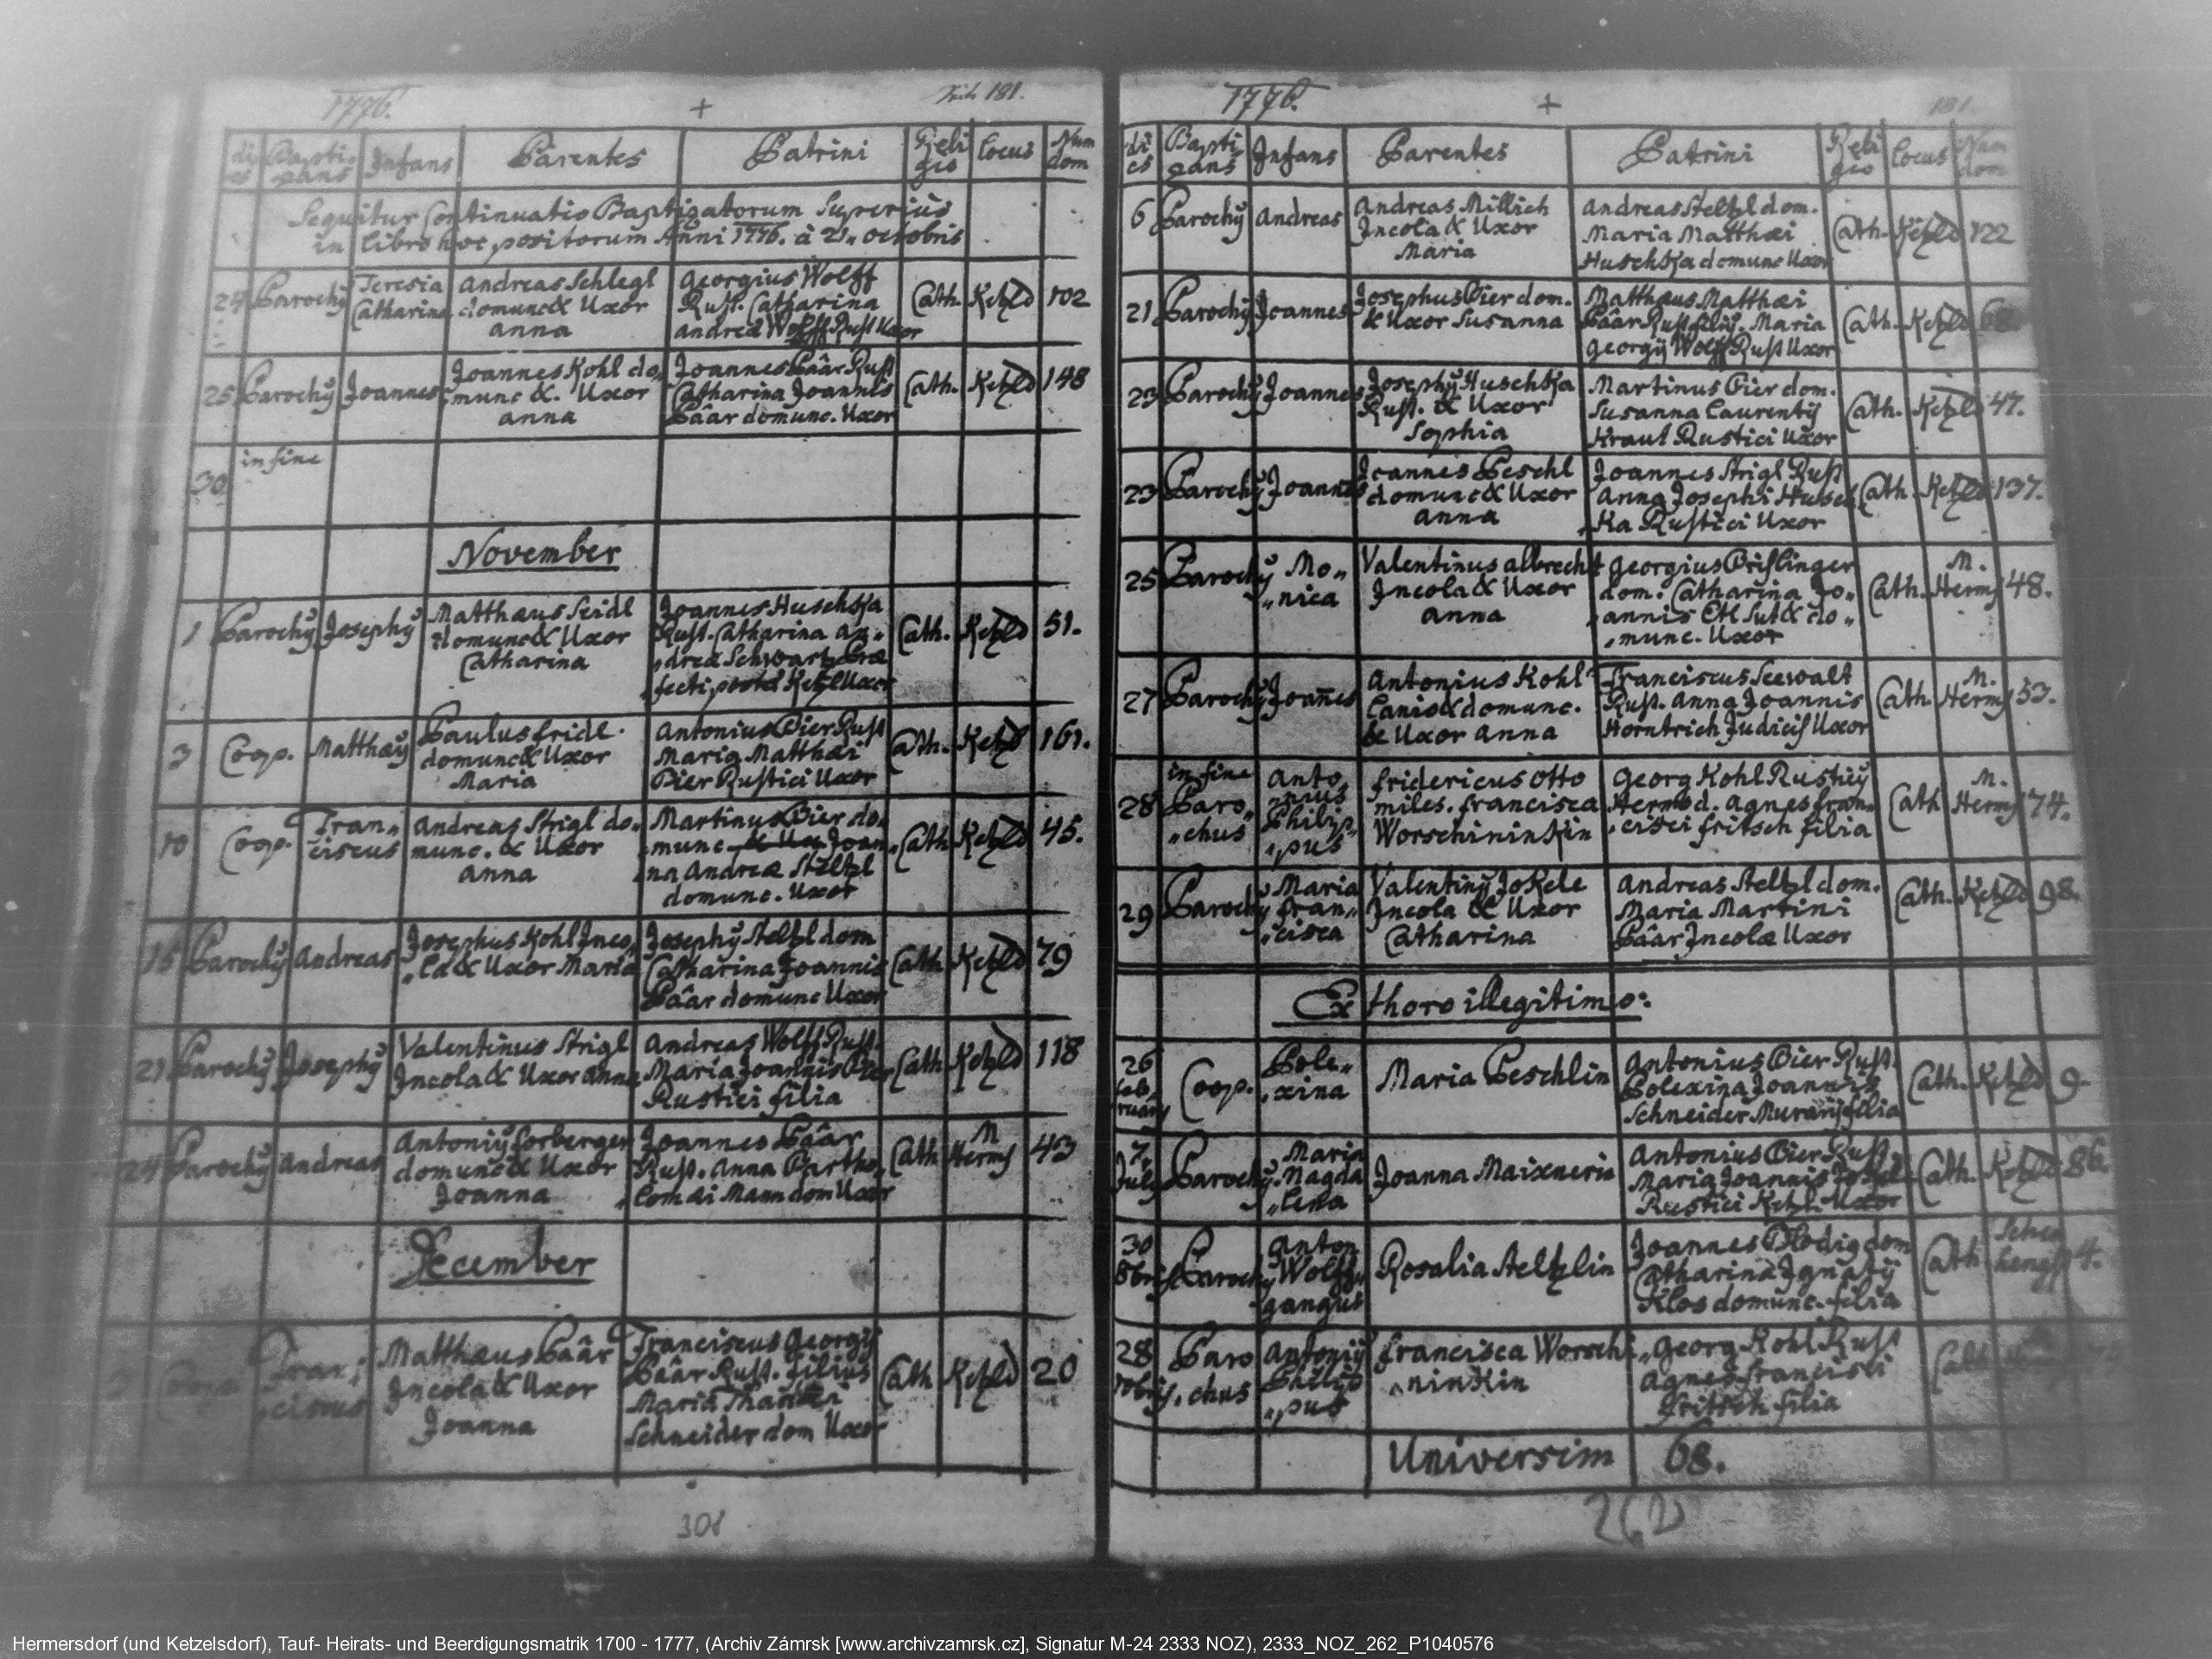 1776.
+
181.
di
es
Bapti-
zans
Infans
Parentes
Patrini
Reli
gio
Locus
Num
dom
Sequitur Continuatio Baptizatorum Superius
in libro hoc positorum Anni 1776. à 21. octobris
24
Parochȳ
Teresia
Catharina
Andreas Schlegl
domunc & Uxor
anna
Georgius Wolff
Rust. Catharina
andreæ Wolff Rust Uxor
Cath.
Ketzld
102
25
Parochȳ
Joannes
Joannes Kohl do„
munc &. Uxor
anna
Joannes Päar Rust
Catharina Joannis
Päar domunc. Uxor
Cath.
Ketzld
148
30
in fine
November
1
Parochȳ
Josephȳ
Matthæus Seidl
domunc & Uxor
Catharina
Joannes Huschka
Rust. Catharina an„
„dreæ Schwartz Præ
fecti Ketzl Uxor
Cath.
Ketzld
51.
3
Coop.
Matthæȳ
Paulus fridl.
domunc & Uxor
Maria
Antonius Pier Rust
Maria Matthæi
Pier Rustici Uxor
Cath.
Ketzld
161.
10
Coop.
Fran„
ciscus
Andreas Strigl do„
munc. & Uxor
anna
Martinus Pier do„
munc & Ux Joan„
„na Andreæ Steltzl
domunc. Uxor
Cath
Ketzld
45.
15
Parochȳ
Andreas
Josephus Kohl Inco„
„la & Uxor Maria
Josephȳ Steltzl dom
Catharina Joannis
Päar domunc Uxor
Cath
Ketzld
79
21
Parochȳ
Josephȳ
Valentinus Strigl
Incola & Uxor Anna
Andreas Wolff Rust.
Maria Joannis Pier
Rustici filia
Cath
Ketzld
118
24
Parochȳ
Andreas
Antoniȳ Lorberger
domunc & Uxor
Joanna
Joannes Päar
Rust. Anna Bartho„
„lomæi Mann dom Uxor
Cath
M
Herms
43
December
Fran„
„ciscus
Matthæus Päar
Incola & Uxor
Joanna
Franciscus Georgȳ
Päar Rust. filius
Maria
Schneider dom Uxor
Cath
Ketzld
20
301
1776.
+
181.
di
es
Bapti
zans
Infans
Parentes
Patrini
Reli
gio
Locus
Num
dom
6
Parochȳ
Andreas
Andreas Millich
Incola & Uxor
Maria
Andreas Steltzl dom.
Maria Matthæi
Huschka domunc Uxor
Cath.
Ketzld
122
21
Parochȳ
Joannes
Josephus Pier dom.
& Uxor Susanna
Matthæus Matthæi
Päar Rust filiȳ. Maria
Georgȳ Wolff Rust Uxor
Cath.
Ketzld
68
23
Parochȳ
Joannes
Josephȳ Huschka
Rust. & Uxor
Sophia
Martinus Pier dom.
Susanna Laurentȳ
Kraul Rustici Uxor
Cath.
Ketzld
47.
23
Parochȳ
Joannes
Joannes Peschl
domunc & Uxor
anna
Joannes Strigl Rust
Anna Josephi Husch
„ka Rustici Uxor
Cath.
Ketzld
137.
25
Parochȳ
Mo„
„nica
Valentinus albrecht
Incola & Uxor
anna
Georgius Prislinger
dom. Catharina Jo„
„annis Etl Sut & do„
„munc. Uxor
Cath.
M.
Herms
48.
27
Parochȳ
Joañes
Antonius Kohl
Lanio & domunc.
& Uxor Anna
Franciscus Seewalt
Rust. Anna Joannis
Horntrich Judicis Uxor
Cath.
M.
Herms
53.
28
in fine
Paro„
„chus
Anto„
„nius
Philip„
„pus
fridericus Otto
miles. francisca
Worschininkin
Georg Kohl Rusticȳ
Hermsd. Agnes fran„
„cisci fritsch filia
Cath
M.
Herms
74.
29
Parochȳ
Maria
fran„
„cisca
Valentinȳ Jokele
Incola & Uxor
Catharina
Andreas Steltzl dom.
Maria Martini
Päar Incolæ Uxor
Cath.
Ketzld
98.
Ex thoro illegitimo:
26
feb„
ruarȳ
Coop.
Pole„
„xina
Maria Peschlin
Antonius Pier Rust.
Polexina Joannis
Schneider Murarȳ filia
Cath.
Ketzld
9.
7.
July
Parochȳ
Maria
Magda
„lena
Joanna Maixnerin
Antonius Pier Rust
Maria Joannis
Rustici Ketzl. Uxor
Cath.
Ketzld
86
30
8bris
Parochȳ
Anton
Wolff„
gangus
Rosalia Steltzlin
Joannes Plodig dom
Catharina Ignatȳ
Klos domunc. filia
Cath
Schen
hengst
4.
28
Paro
„chus
Antoniȳ
Philip
„pus
francisca Worschi„
„ninkin
Georg Kohl Rust
Agnes francisci
fritsch filia
Cath
Universim 68.
262
Hermersdorf (und Ketzelsdorf), Tauf- Heirats- und Beerdigungsmatrik 1700 - 1777, (Archiv Zámrsk [www.archivzamrsk.cz], Signatur M-24 2333 NOZ), 2333_NOZ_262_P1040576